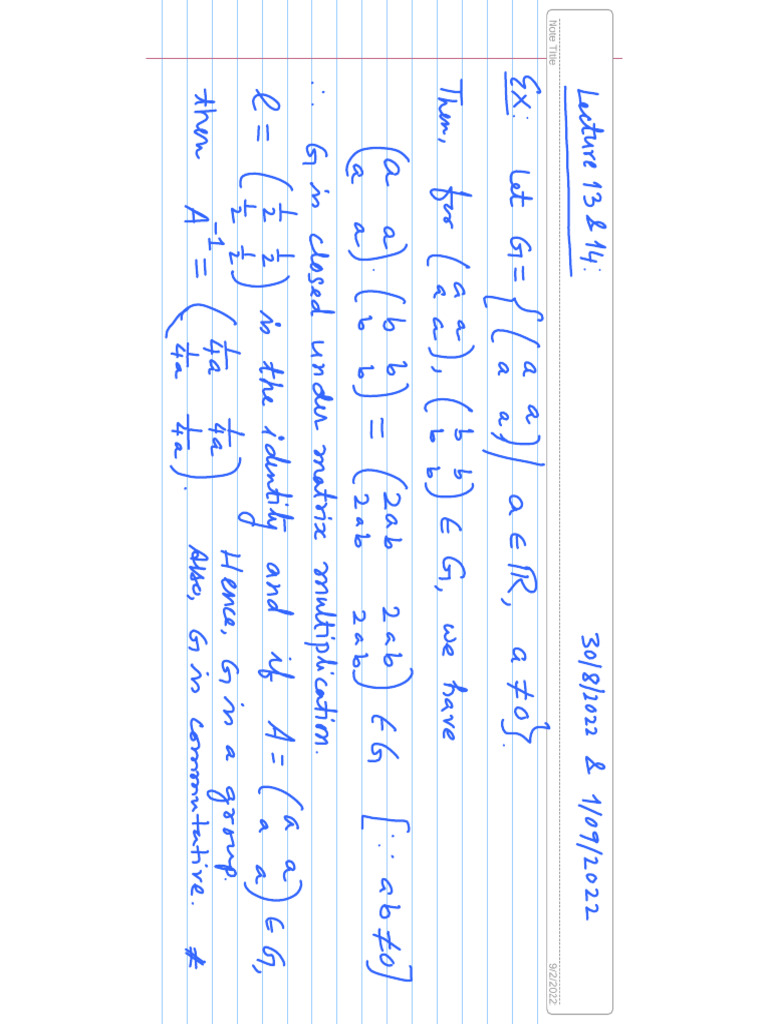 Note Title
9/2/2022
Lecture 13 & 14: 30/8/2022 & 1/09/2022
EX: Let G = { ( a a ; a a ) | a ∈ ℝ, a ≠ 0 }.
Then, for ( a a ; a a ), ( b b ; b b ) ∈ G, we have
( a a ; a a ) · ( b b ; b b ) = ( 2ab 2ab ; 2ab 2ab ) ∈ G [ ∵ ab ≠ 0 ]
∴ G is closed under matrix multiplication.
e = ( 1/2 1/2 ; 1/2 1/2 ) is the identity and if A = ( a a ; a a ) ∈ G,
then A⁻¹ = ( 1/4a 1/4a ; 1/4a 1/4a ). Hence, G is a group.
Also, G is commutative. #